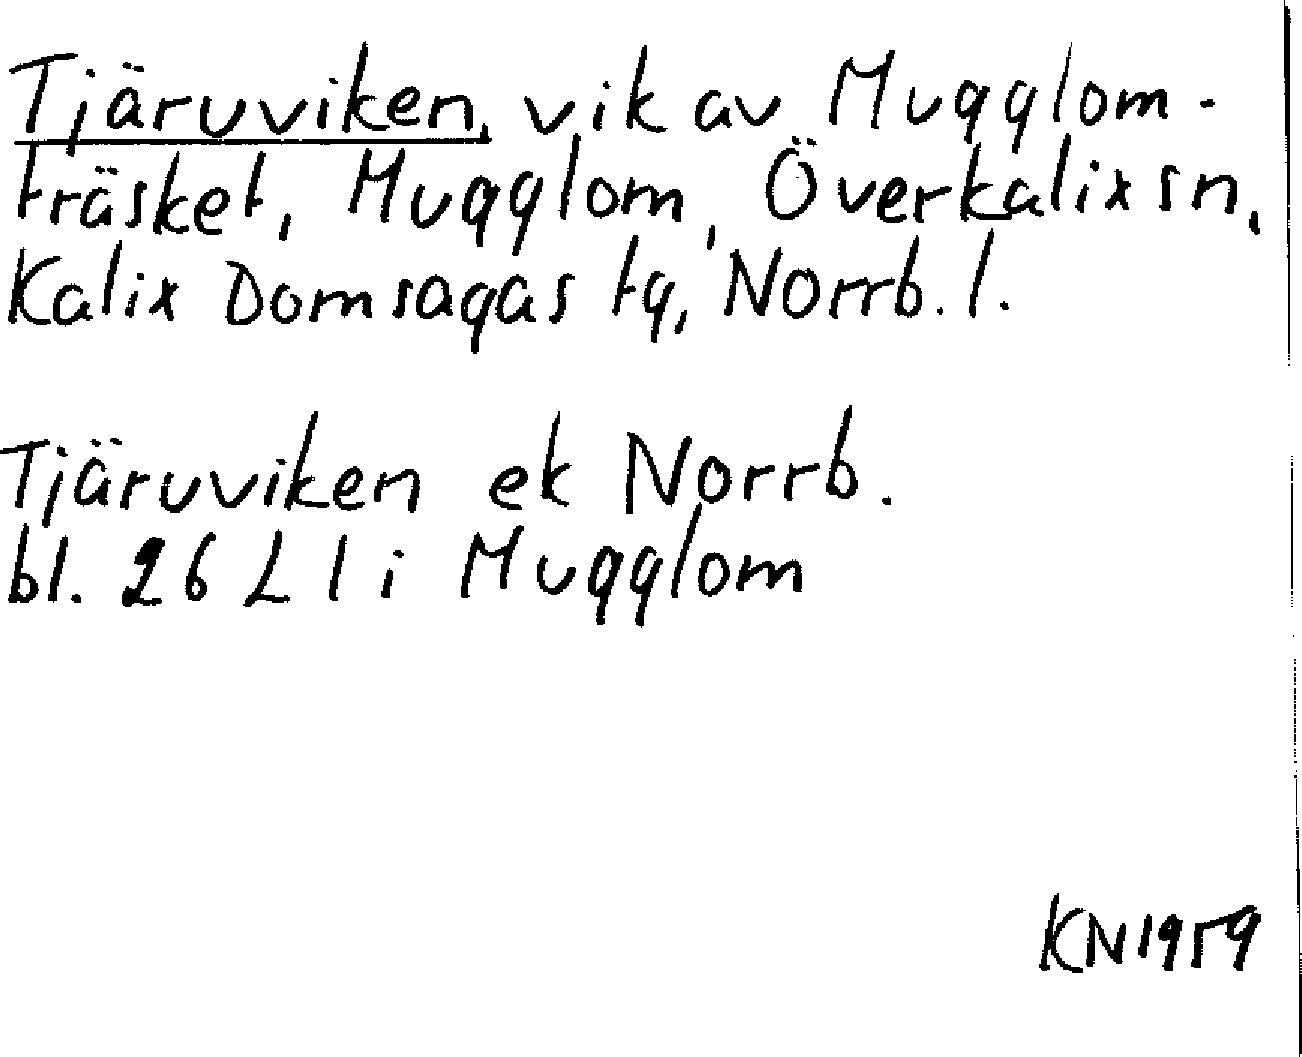 Tjäruviken, vik av Mugglom-
träsket, Mugglom, Överkalix sn,
Kalix Domsagas tg, Norrb. l.
Tjäruviken ek Norrb.
bl. 26 L 1 i Mugglom
KN 1959